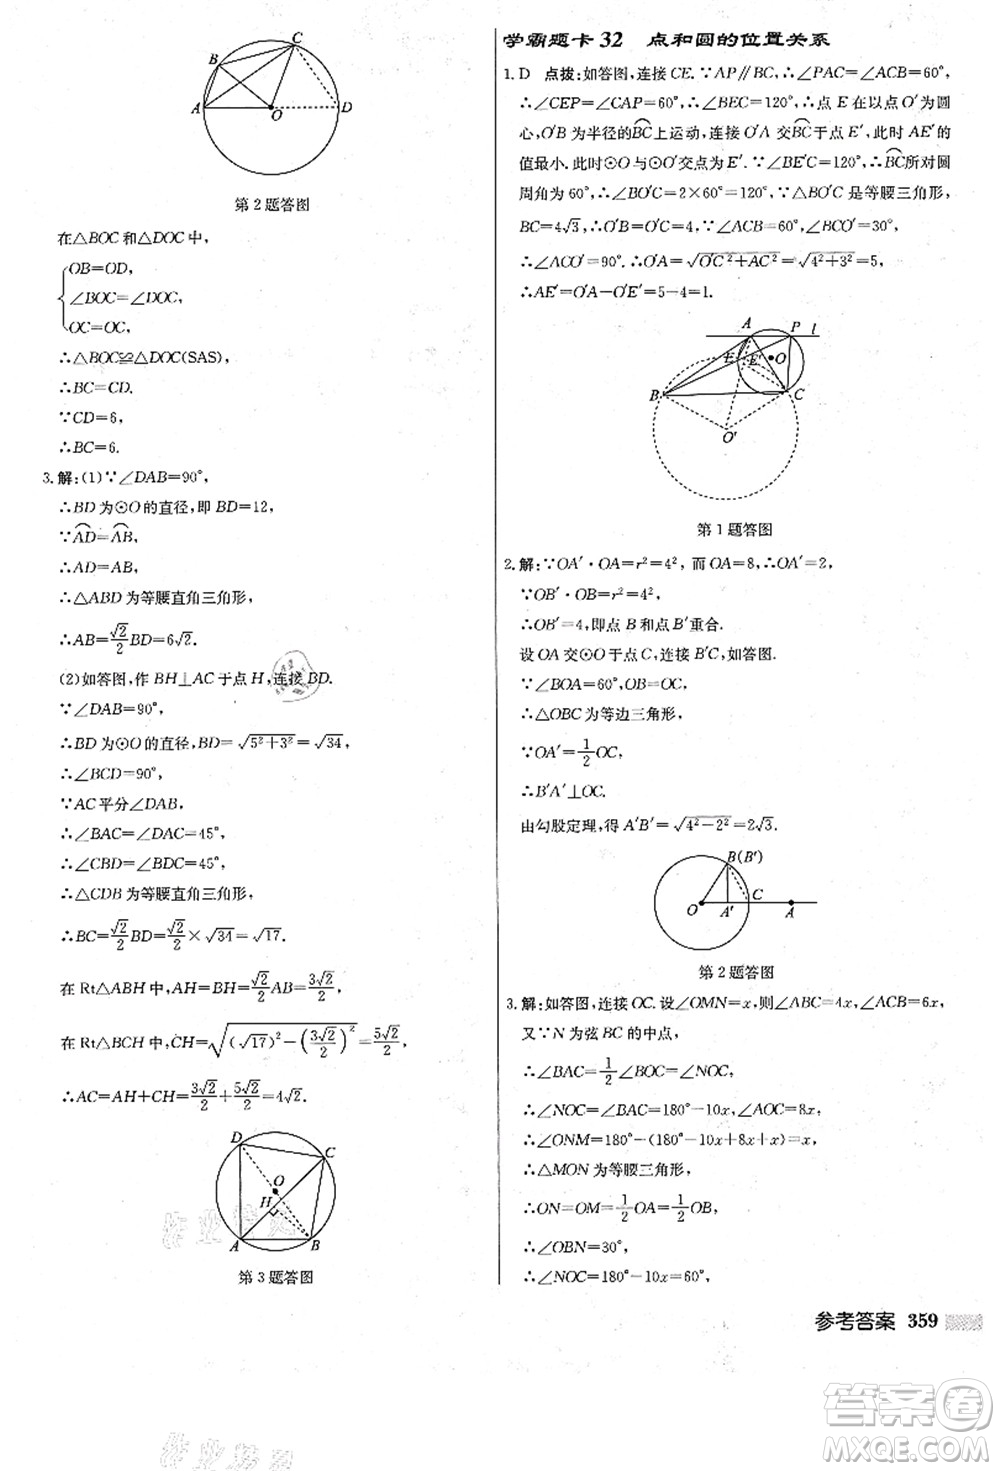 第2题答图
在△BOC和△DOC中,
OB=OD,
∠BOC=∠DOC,
OC=OC,
∴△BOC≌△DOC(SAS)
∴BC=CD.
∵CD=6,
∴BC=6.
3.解:(1)∵∠DAB=90°,
∴BD为⊙O的直径,即BD=12,
∵⌒AD=⌒AB,
∴AD=AB,
∴△ABD为等腰直角三角形,
∴AB=√2/2BD=6√2.
(2)如答图,作BH⊥AC于点H,连接BD.
∵∠DAB=90°,
∴BD为⊙O的直径,BD=√(5²+3²)=√34,
∴∠BCD=90°,
∵AC平分∠DAB,
∴∠BAC=∠DAC=45°,
∴∠CDB=∠BDC=45°,
∴△CDB为等腰直角三角形,
∴BC=√2/2BD=√2/2×√34=√17.
在Rt△ABH中,AH=BH=√2/2AB=3√2/2,
在Rt△BCH中,CH=√((√17)²-(3√2/2)²)=5√2/2,
∴AC=AH+CH=3√2/2+5√2/2=4√2.
第3题答图
学霸题卡32 点和圆的位置关系
1.D 点拨:如答图,连接CE.∵AP∥BC,∴∠PAC=∠ACB=60°,
∴∠CEP=∠CAP=60°,∴∠BEC=120°,∴点E在以点O′为圆
心,O′B为半径的⌒BC上运动,连接O′A交⌒BC于点E′,此时AE′的
值最小.此时⊙O与⊙O′交点为E′.∵∠BE′C=120°,∴⌒BC所对圆
周角为60°,∴∠BO′C=2×60°=120°,∵△BO′C是等腰三角形,
BC=4√3,∴O′B=O′C=4,∵∠ACB=60°,∠BCO′=30°,
∴∠ACO′=90°.∴O′A=√(O′C²+AC²)=√(4²+3²)=5,
∴AE′=O′A-O′E′=5-4=1.
第1题答图
2.解:∵OA′·OA=r²=4²,而OA=8,∴OA′=2,
∵OB′·OB=r²=4²,
∴OB′=4,即点B和点B′重合.
设OA交⊙O于点C,连接B′C,如答图.
∵∠BOA=60°,OB=OC,
∴△OBC为等边三角形,
∵OA′=1/2OC,
∴B′A′⊥OC.
由勾股定理,得A′B′=√(4²-2²)=2√3.
第2题答图
3.解:如答图,连接OC.设∠OMN=x,则∠ABC=4x,∠ACB=6x,
又∵N为弦BC的中点,
∴∠BAC=1/2∠BOC,
∴∠NOC=∠BAC=180°-10x,∠AOC=8x,
∴∠ONM=180°-(180°-10x+8x+x)=x,
∴△MON为等腰三角形,
∴ON=OM=1/2OA=1/2OB,
∴∠OBN=30°,
∴∠NOC=180°-10x=60°,
参考答案 359
答案圈
MXQE.COM